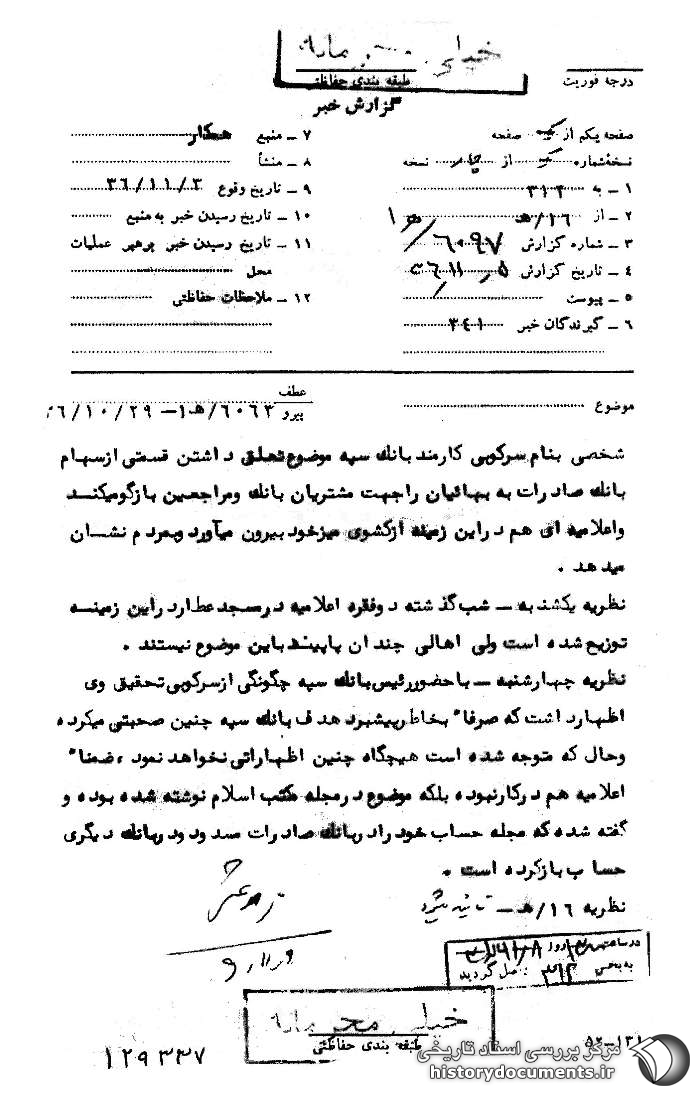 خیلی محرمانه
طبقه بندی حفاظتی
درجه فوریت
گزارش خبر
صفحه یکم از یک صفحه
نسخه شماره یک از چهار نسخه
۱ – به ۳۱۲
۲ – از ۱۶/هـ ۱
۳ – شماره گزارش ۶۰۹۷/هـ۱
۴ – تاریخ گزارش
۵ – پیوست
۶ – گیرندگان خبر ۳٤۱
۷ – منبع همکار
۸ – منشأ
۹ – تاریخ وقوع ۳۶/۱۱/۳
۱۰ – تاریخ رسیدن خبر به منبع
۱۱ – تاریخ رسیدن خبر برهبر عملیات
محل
۱۲ – ملاحظات حفاظتی
موضوع
عطف
پیرو ۶۰۶۳/هـ۱–۵۶/۱۰/۲۹
شخصی بنام سرکوبی کارمند بانك سپه موضوع تعلق داشتن قسمتی ازسهام
بانك صادرات به بهائیان راجهت مشتریان بانك ومراجعین بازگومیکند
واعلامیه ای هم دراین زمینه ازکشوی میزخود بیرون میآورد وبمردم نشان
میدهد .
نظریه یکشنبه – شب گذشته دوفقره اعلامیه درمسجد عطاردراین زمینه
توزیع شده است ولی اهالی چندان پایبند باین موضوع نیستند .
نظریه چهارشنبه – باحضوررئیس بانك سپه چگونگی ازسرکوبی تحقیق وی
اظهارداشت که صرفا" بخاطر پیشبرد هدف بانك سپه چنین صحبتی میکرده
وحال که متوجه شده است هیچگاه چنین اظهاراتی نخواهد نمود ، ضمنا"
اعلامیه هم درکارنبوده بلکه موضوع درمجله مکتب اسلام نوشته شده بوده و
گفته شده که مجله حساب خودرادربانك صادرات مسدود ودربانك دیگری
حساب بازکرده است .
نظریه ۱۶/هـ – تائید میشود
در ساعت روز
به بخش ۳۱۲ واصل گردید
خیلی محرمانه
طبقه بندی حفاظتی
۱۲۹۳۳۷
۵۲–۱۲۱
مرکز بررسی اسناد تاریخی
historydocuments.ir